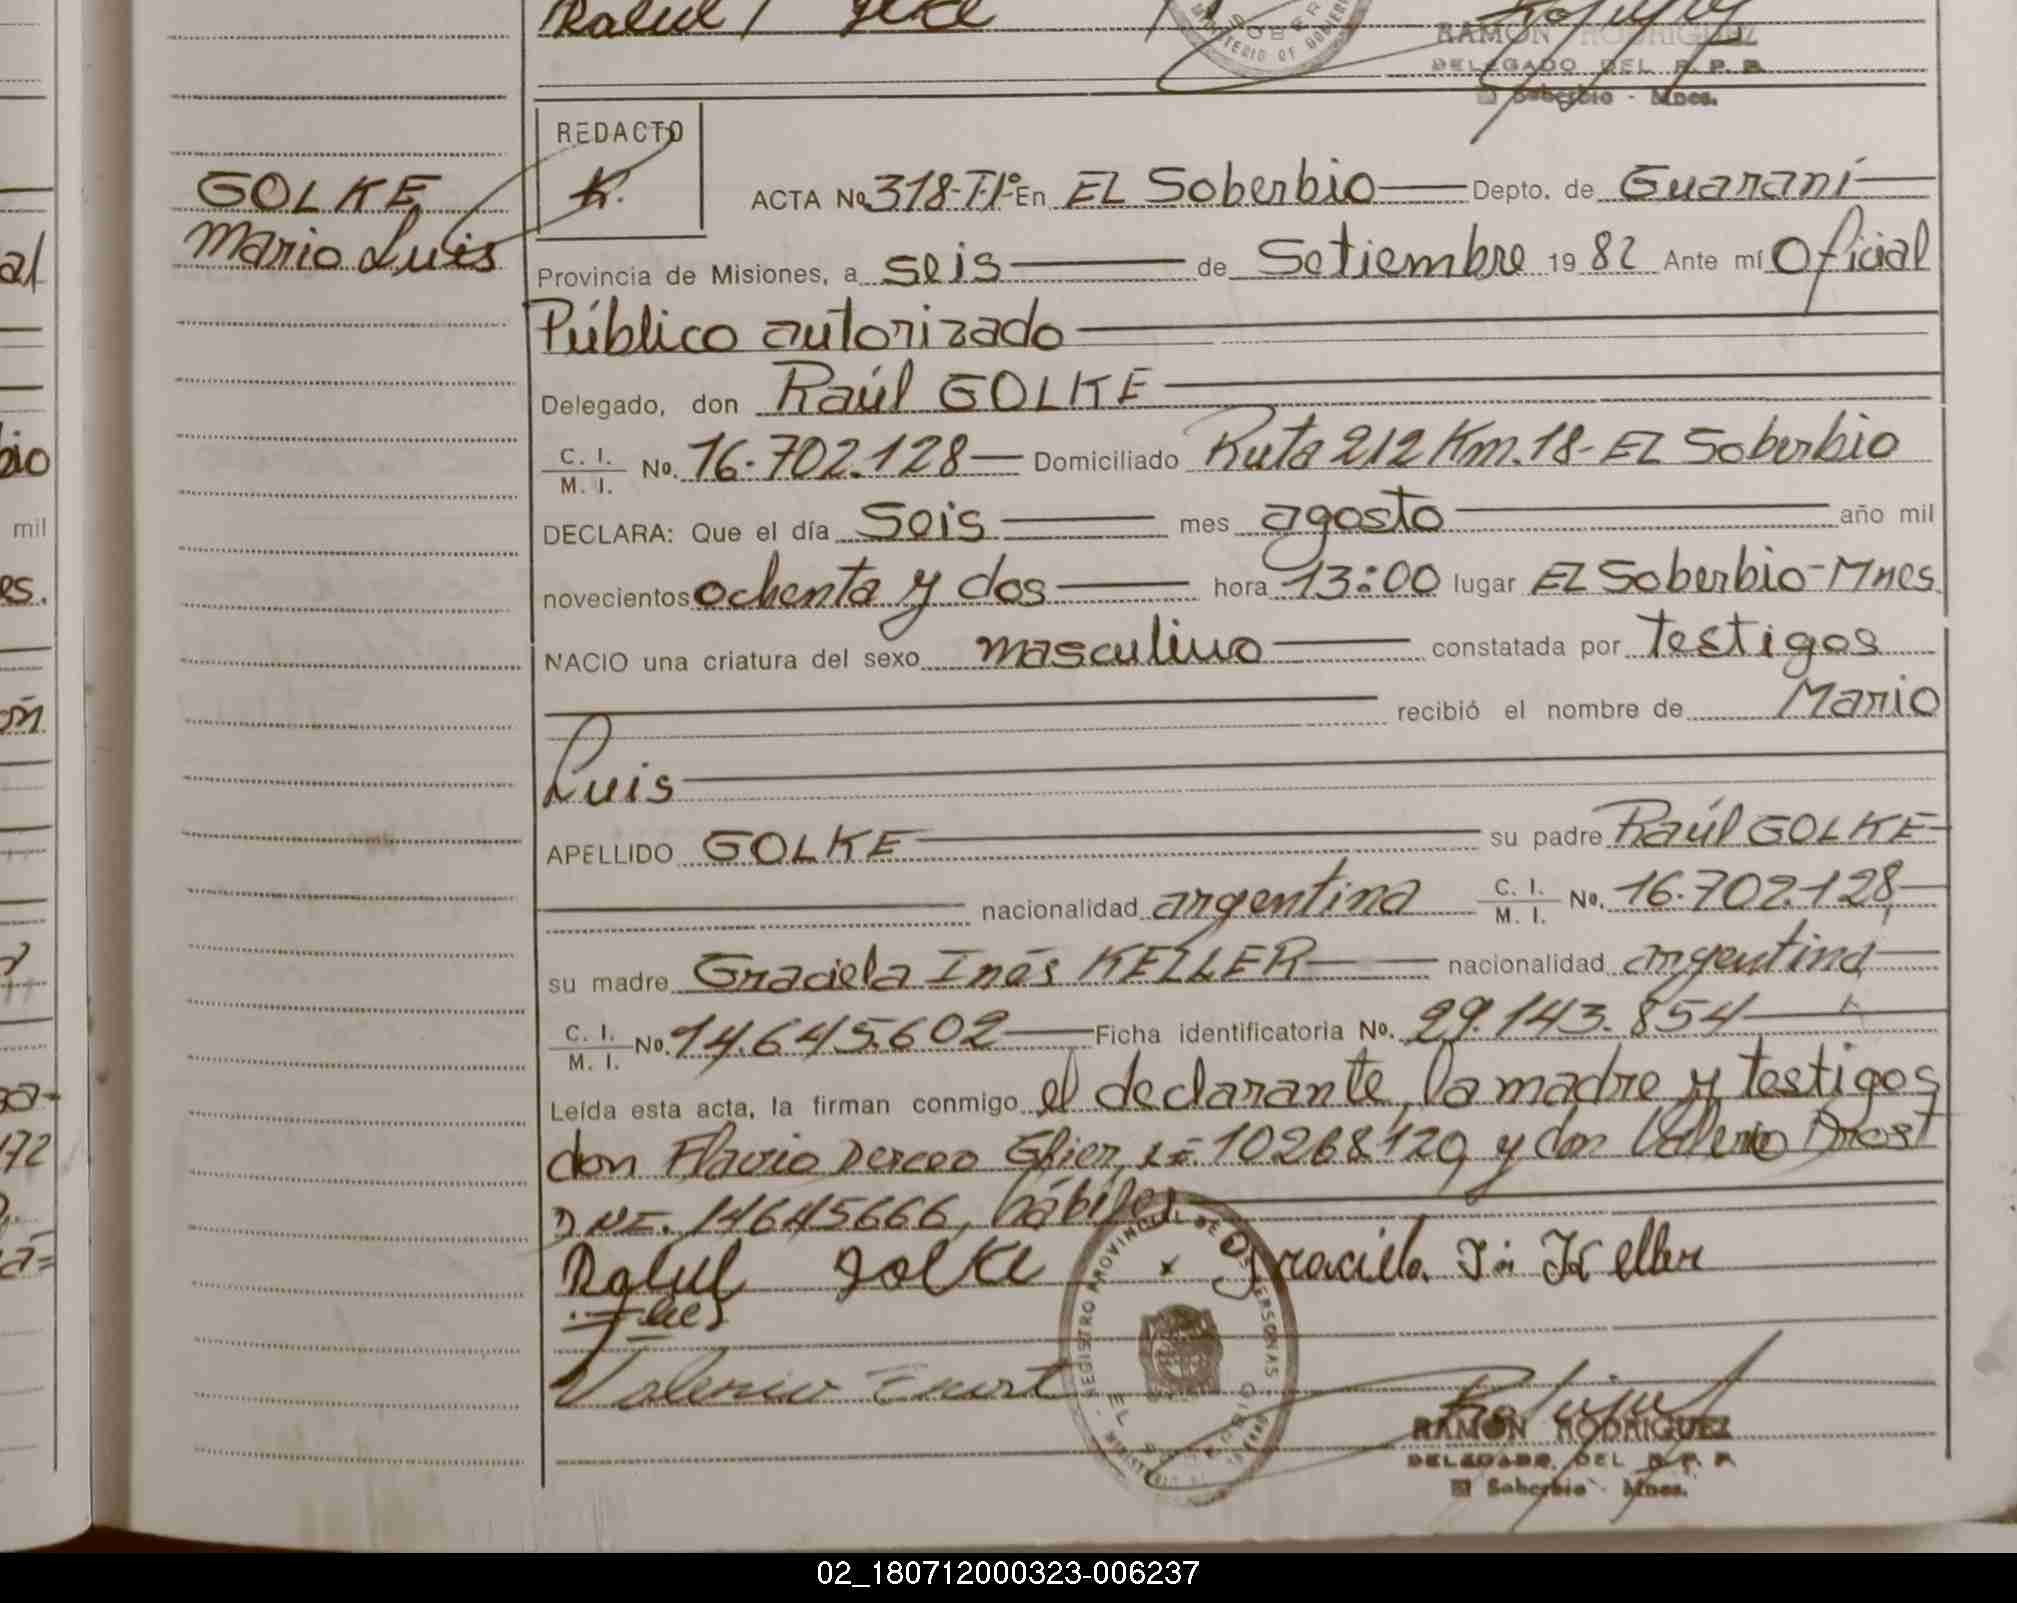 RAMON RODRIGUEZ
DELEGADO DEL R. P. P.
El Soberbio - Mnes.
REDACTO
K.
GOLKE
Mario Luis
ACTA No 318-T-1º En EL Soberbio Depto. de Guaraní
Provincia de Misiones, a seis de Setiembre 19 82 Ante mí Oficial
Público autorizado
Delegado, don Raúl GOLKE
C. I. / M. I. No. 16.702.128 Domiciliado Ruta 212 Km. 18- EL Soberbio
DECLARA: Que el día Seis mes agosto año mil
novecientos ochenta y dos hora 13:00 lugar EL Soberbio-Mnes.
NACIO una criatura del sexo masculino constatada por testigos
recibió el nombre de Mario
Luis
APELLIDO GOLKE su padre Raúl GOLKE
nacionalidad argentina C. I. / M. I. No. 16.702.128,
su madre Graciela Inés KELLER nacionalidad argentina
C. I. / M. I. No. 14.645.602 Ficha identificatoria No. 29.143.854
Leída esta acta, la firman conmigo el declarante, la madre y testigos
don Flavio 10268120, y don Valerio
14645666, hábiles
Raúl Golke Graciela In Keller
Valerio
REGISTRO PROVINCIAL DE LAS PERSONAS
EL SOBERBIO
RAMON RODRIGUEZ
DELEGADO DEL R. P. P.
El Soberbio - Mnes.
al
bio
mil
es.
02_180712000323-006237